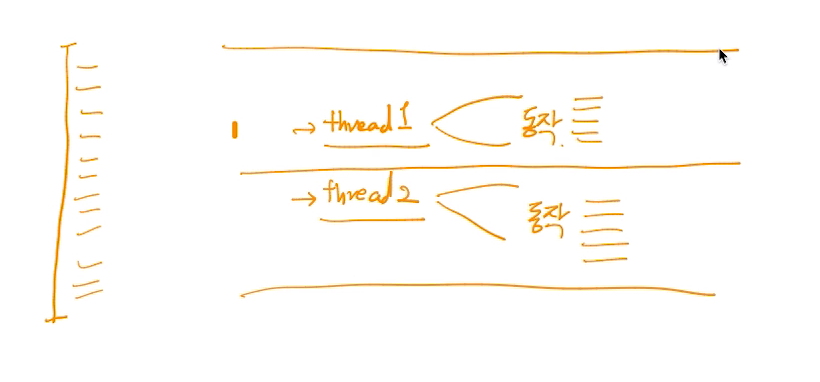 → thread 1 동작.
→ thread 2 동작